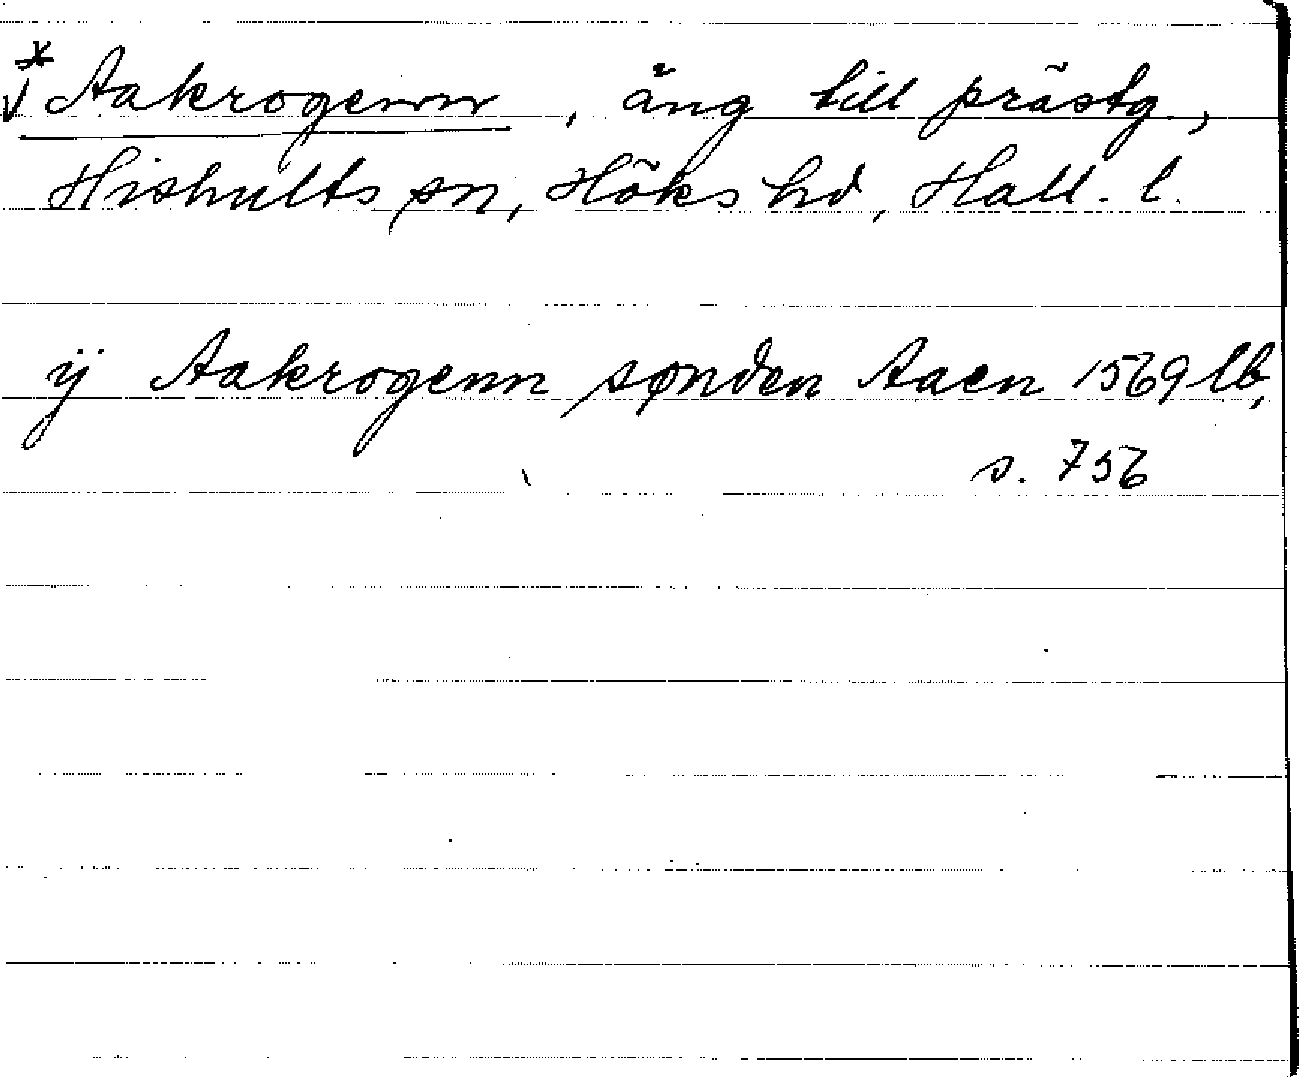 * √ Aakrogenn, äng till prästg.,
Hishults sn, Höks hd, Hall. l.
ÿ Aakrogenn sønden Aaen 1569 lb,
s. 756